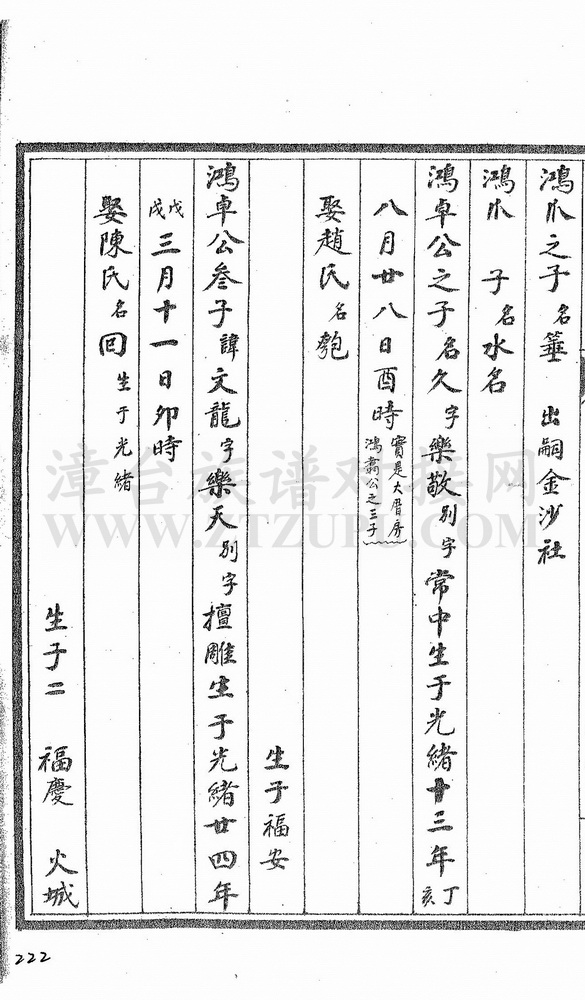 鴻爪之子名箠 出嗣金沙社
鴻爪 子名水名
鴻卓公之子名久字樂敬別字常中生于光緒十三年丁亥
八月廿八日酉時實是大厝房鴻翥公之三子
娶趙氏名匏
生子福安
鴻卓公叁子諱文龍字樂天別字擅雕生于光緒廿四年
戊戌三月十一日卯時
娶陳氏名回生于光緒
生子二 福慶 火城
222
漳台族谱对接网
WWW.ZTZUPU.COM